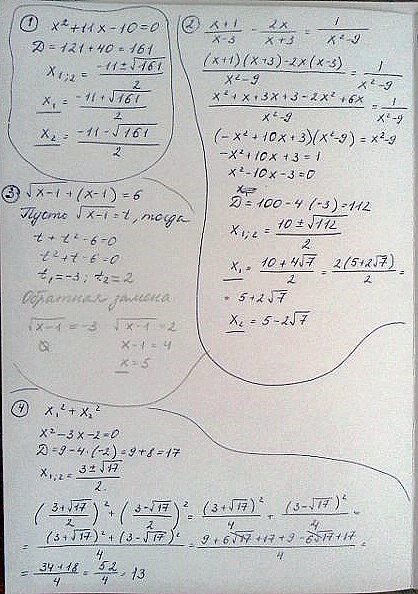 ① x² + 11x - 10 = 0
D = 121 + 40 = 161
x₁;₂ = (-11 ± √161)/2
x₁ = (-11 + √161)/2
x₂ = (-11 - √161)/2
② (x+1)/(x-3) - 2x/(x+3) = 1/(x²-9)
((x+1)(x+3) - 2x(x-3))/(x²-9) = 1/(x²-9)
(x² + x + 3x + 3 - 2x² + 6x)/(x²-9) = 1/(x²-9)
(-x² + 10x + 3)(x²-9) = x²-9
-x² + 10x + 3 = 1
x² - 10x - 3 = 0
D = 100 - 4·(-3) = 112
x₁;₂ = (10 ± √112)/2
x₁ = (10 + 4√7)/2 = 2(5 + 2√7)/2 =
= 5 + 2√7
x₂ = 5 - 2√7
③ √x-1 + (x-1) = 6
Пусть √x-1 = t, тогда
t + t² - 6 = 0
t² + t - 6 = 0
t₁ = -3; t₂ = 2
Обратная замена
√x-1 = -3 √x-1 = 2
∅ x - 1 = 4
x = 5
④ x₁² + x₂²
x² - 3x - 2 = 0
D = 9 - 4·(-2) = 9 + 8 = 17
x₁;₂ = (3 ± √17)/2
((3+√17)/2)² + ((3-√17)/2)² = (3+√17)²/4 + (3-√17)²/4 =
= ((3+√17)² + (3-√17)²)/4 = (9 + 6√17 + 17 + 9 - 6√17 + 17)/4 =
= (34 + 18)/4 = 52/4 = 13